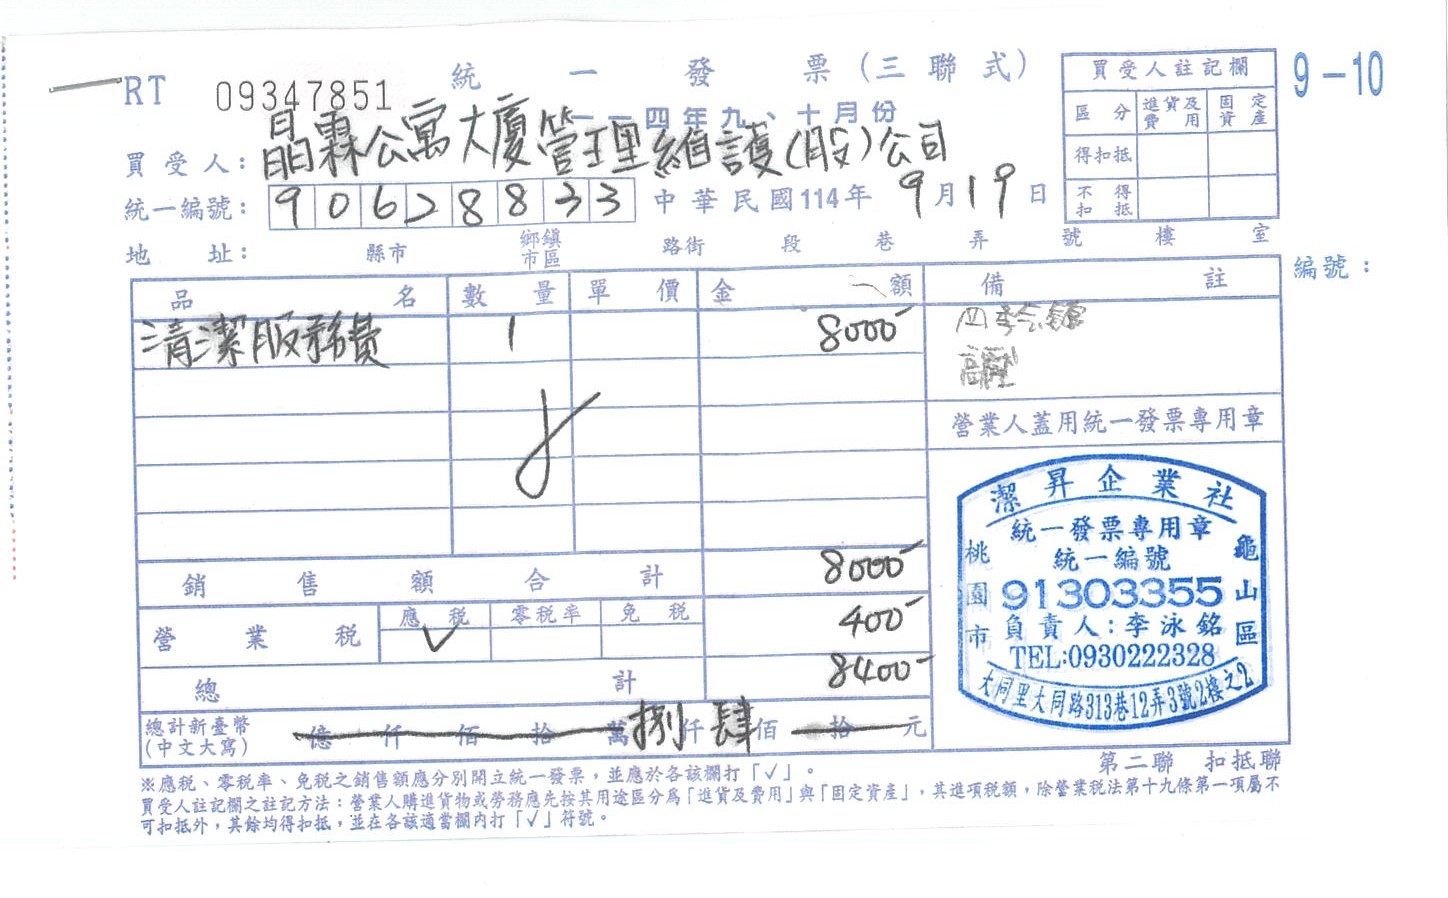 RT 09347851 統一發票(三聯式)
一一四年九、十月份
9-10
買受人註記欄
區分 進貨及費用 固定資產
得扣抵
不得扣抵
買受人：晶霖公寓大廈管理維護(股)公司
統一編號：90628833 中華民國114年9月19日
地址： 縣市 鄉鎮市區 路街 段 巷 弄 號 樓 室
編號：
品名 數量 單價 金額 備註
清潔服務費 1 8000 四季會館
營業人蓋用統一發票專用章
銷售額合計 8000
營業稅 應稅 零稅率 免稅 400
✓
總計 8400
總計新臺幣(中文大寫) 億仟佰拾萬捌仟肆佰拾元
潔昇企業社
統一發票專用章
統一編號
91303355
負責人：李泳銘
TEL:0930222328
桃園市
龜山區
大同里大同路313巷12弄3號2樓之2
第二聯 扣抵聯
※應稅、零稅率、免稅之銷售額應分別開立統一發票，並應於各該欄打「✓」。
買受人註記欄之註記方法：營業人購進貨物或勞務應先按其用途區分為「進貨及費用」與「固定資產」，其進項稅額，除營業稅法第十九條第一項屬不
可扣抵外，其餘均得扣抵，並在各該適當欄內打「✓」符號。